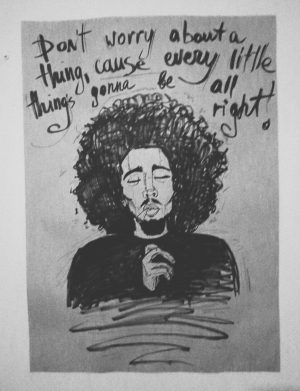 Don't worry about a
thing, cause every little
things gonna be all
right!